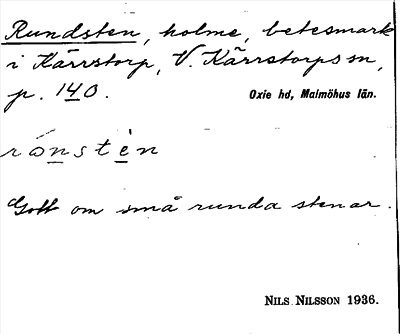 Rundsten, holme, betesmark
i Kärrstorp, V. Kärrstorps sn,
p. 140. Oxie hd, Malmöhus län.
rónstèn
Gott om små runda stenar.
NILS NILSSON 1936.